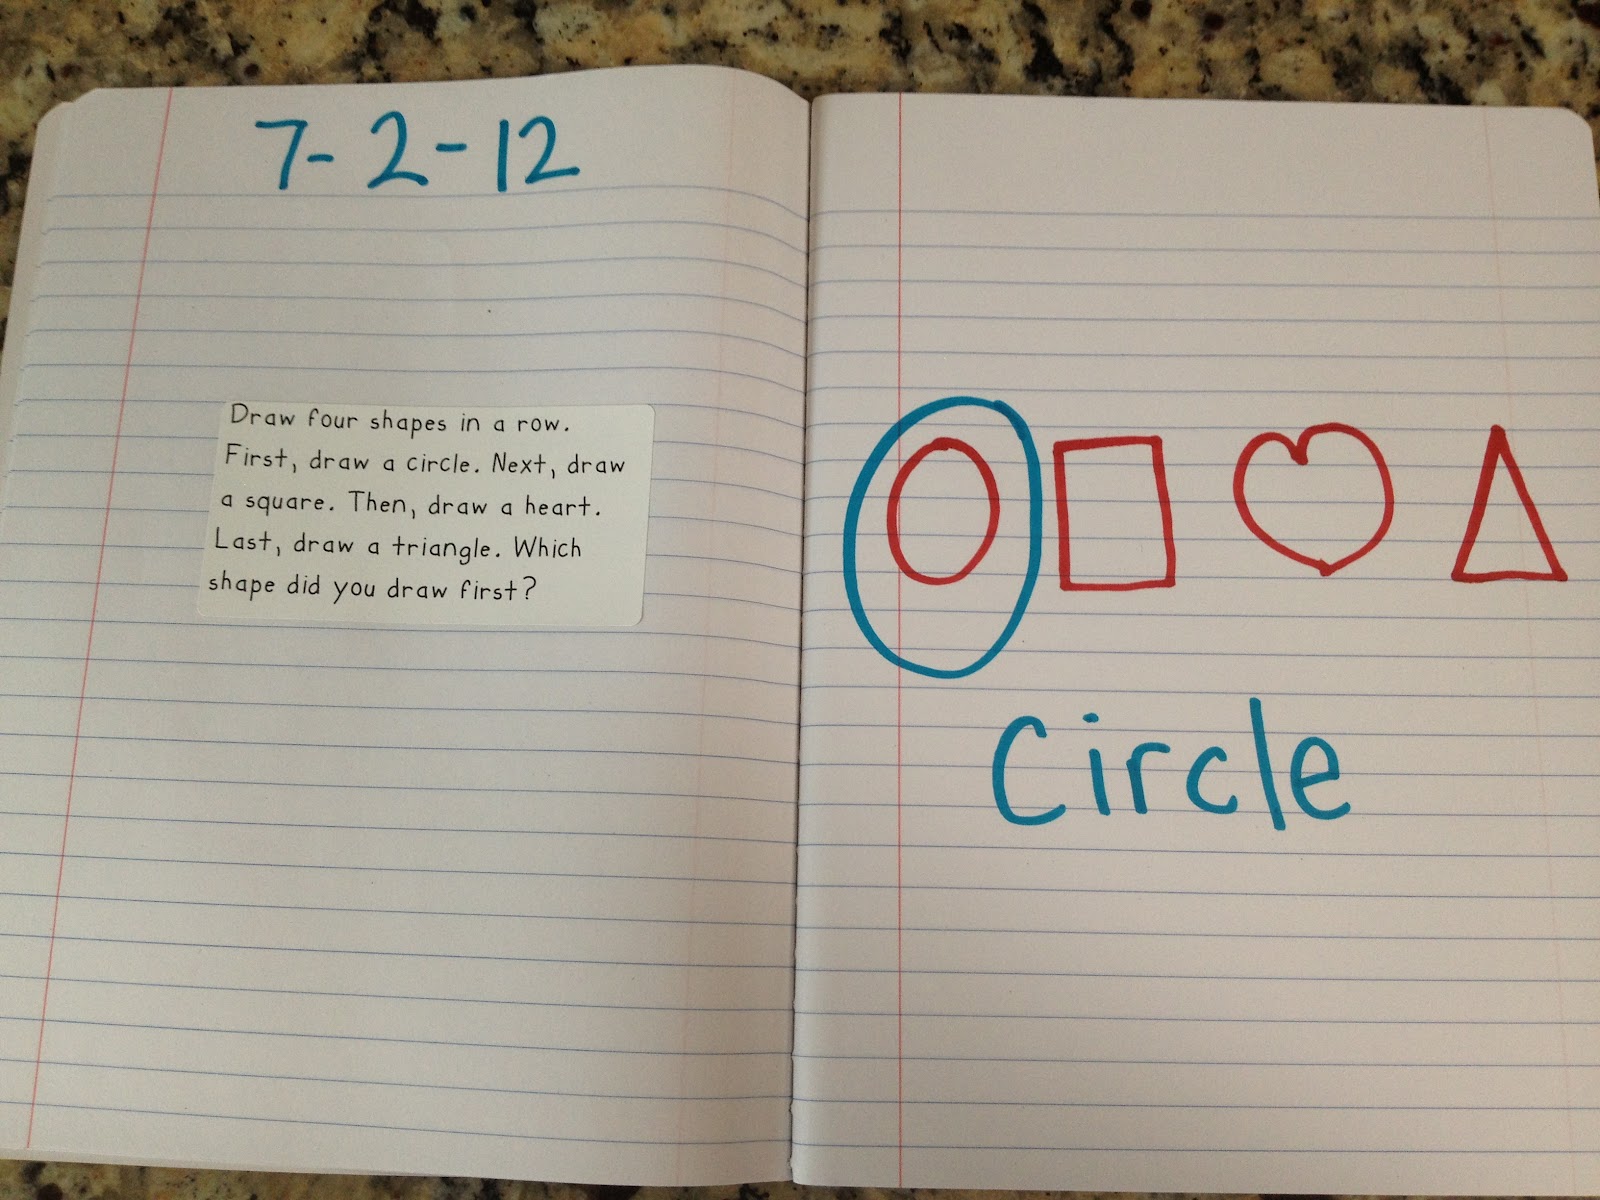 7-2-12
Draw four shapes in a row.
First, draw a circle. Next, draw
a square. Then, draw a heart.
Last, draw a triangle. Which
shape did you draw first?
Circle